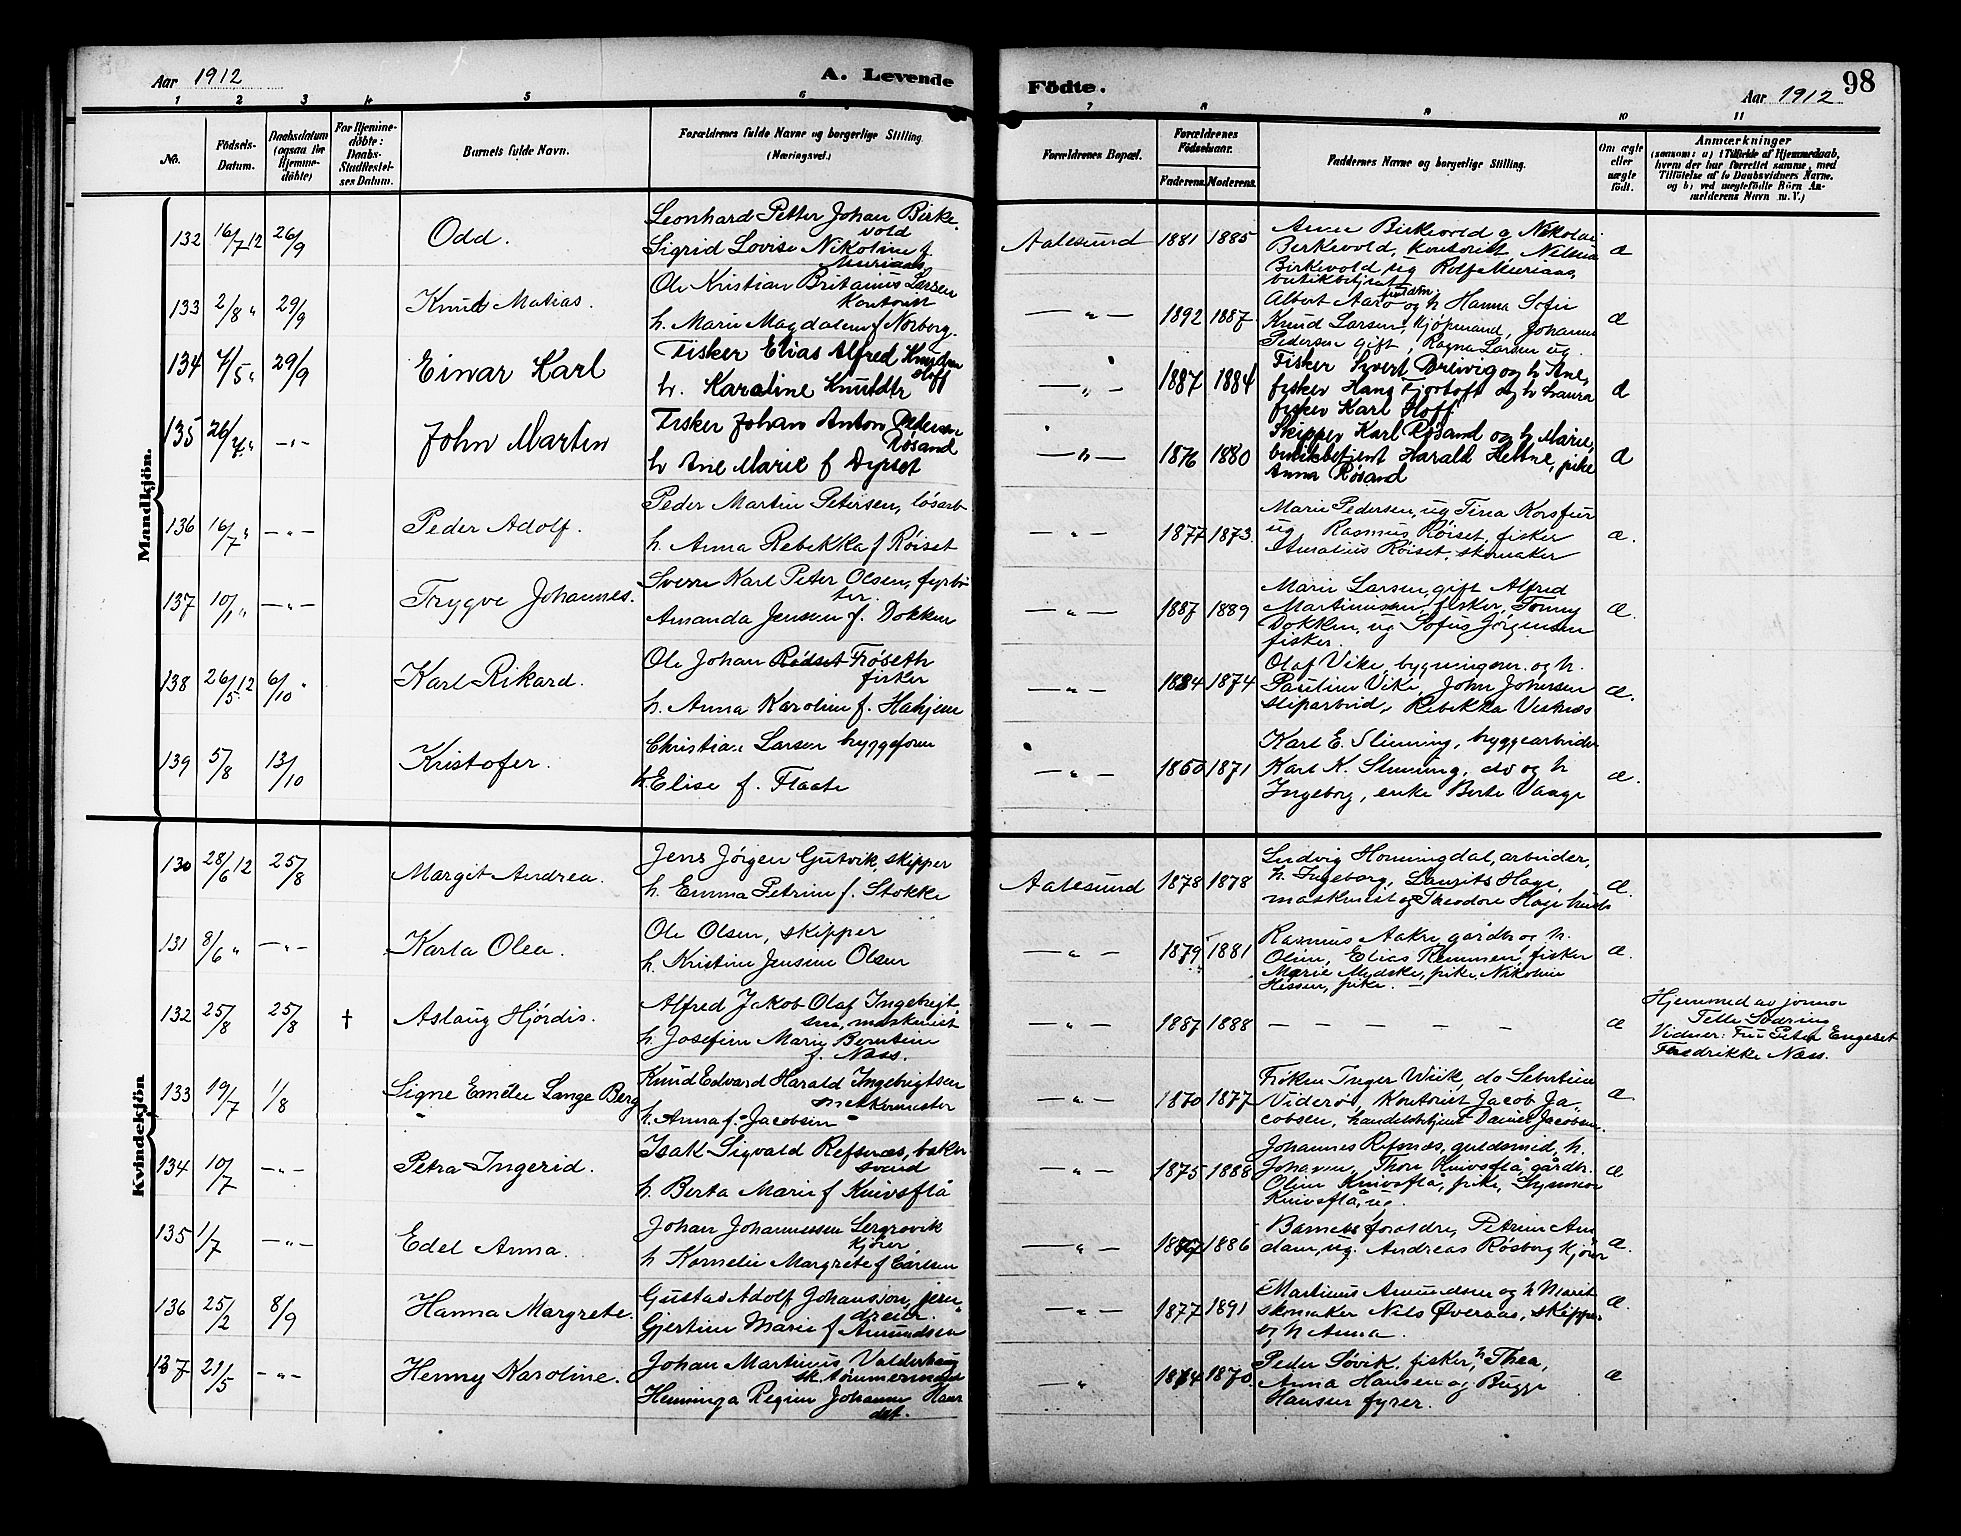 Aar 1912
A. Levende
Födte.
Aar 1912
98
1 2 3 4 5 6 7 8 9 10 11
No.
Födsels-
Datum.
Daabsdatum
(ogsaa for
Hjemme-
döbte)
For Hjemme-
döbte:
Daabs-
Stadfæstel-
ses Datum.
Barnets fulde Navn.
Forældrenes fulde Navne og borgerlige Stilling.
(Næringsvei.)
Forældrenes Bopæl.
Forældrenes
Födselsaar.
Faderens.
Moderens.
Faddernes Navne og borgerlige Stilling.
Om ægte
eller
uægte
født.
Anmærkninger
(saasom: a) i Tilfælde af Hjemmedaab,
hvem der har forrettet samme, med
Tilføielse af to Daabsvidners Navne.
og b) ved uægtefødte Börn An-
melderens Navn m. V.)
Mandkjön.
132 16/7 12 26/9 Odd.
Leonhard Petter Johan Birke-
vold
Sigrid Lovise Nikoline f.
Muriaas
Aalesund 1881 1885
Birkevold og Nikolai
Birkevold, kontorist,
Birkevold ug Rolf Muriaas,
butikbetjent
æ
133 2/8 " 29/9 Knud Matias.
Ole Kristian Britanius Larsen
kontorist
h. Marie Magdalene f. Norborg.
— " — 1892 1887
Albert Aarø og h Hanna Sofie
Knud Larsen, kjøpmand, Johanne
Pedersen gift, Ragna Larsen ug.
æ
134 4/5 " 29/9 Einar Karl
Fisker Elias Alfred Knudsen
Hoff
h. Karoline Knudtr
— " — 1887 1884
Fisker Syvert Dreivig og h Ane,
fisker Hans Fjortoft og h Laura
fisker Karl Hoff
æ
135 26/4 " — " — John Martin
Fisker Johan Anton Pedersen
Røsand
h Ane Marie f Dyrset
— " — 1876 1880
Skipper Karl Røsand og h Marie,
butikbetjent Harald Helsne, pike
Anna Røsand
æ
136 16/7 " — " — Peder Adolf.
Peder Martin Petersen, løsarb
h. Anna Rebekka f Røiset
— " — 1877 1873.
Marie Pedersen, ug Tina Korsfur
ug Rasmus Røiset, fisker
Amalius Røiset, skomaker
æ.
137 10/1 " — " — Trygve Johannes.
Sverre Karl Peter Olsen, fyrbø-
ter.
Amanda Jensen f. Dokken
— " — 1887 1889
Marie Larsen, gift Alfred
Martinussen, fisker, Tomny
Dokken, ug Sofus Jørgensen
fisker.
æ.
138 26/5 12 6/10 " Karl Rikard.
Ole Johan Rødset Frøseth
fisker
h. Anna Karoline f. Hahjem
— " — 1884 1874
Olaf Vike, bygningsarb. og h.
Pauline Vike, John Johnsen
sliparbeid., Rebekka Vestnæs
æ.
139 5/8 13/10 Kristofer.
Christian Larsen bryggeform
h. Elise f. Flaate
— " — 1860 1871
Karl E. Slinning, bryggearbeider
Karl K. Slinning, do og h
Ingeborg, enke Berte Vaage
æ.
Kvindekjön
130 28/6 12 25/8 Margit Andrea.
Jens Jørgen Gjutvik, skipper
h. Emma Petrine f. Stokke
Aalesund 1878 1878
Ludvig Honningdal, arbeider,
h. Ingeborg, Laurits Hage,
maskinist og Theodore Hage hustr
æ
131 8/6 " — " — Karla Olea.
Ole Olsen, skipper
h. Kristine Jensine Olsen
— " — 1879 1881
Rasmus Aakre, gårdbr og h.
Oline, Elias Remmen, fisker
Marie Myrske, pike, Nikoline
Hessen, pike. —
æ.
132 25/8 25/8 † Aslaug Hjørdis.
Alfred Jakob Olaf Ingebrigt-
sen, maskinist
h. Josefine Marie Berntsen
f. Næss.
— " — 1887 1888 — — — — —
æ
Hjemmed av jormor
Telle Sværins
Vidner: Fru Peter Engeset
Fredrikke Næss.
133 19/7 1/8 Signe Emilie Lange Berg
Knud Edvard Harald Ingebrigtsen
snekkermester
h. Anna f. Jacobsen
— " — 1870 1877
Frøken Inger Wiik, do Sebertine
Viderø Kontorist Jacob Ja-
cobsen, handelsbetjent Daniel Jacobsen.
æ
134 10/7 — " — Petra Ingerid.
Isak Sigvald Refsnæs, baker-
svend
h. Berta Marie f Knivsflå
— " — 1875 1888
Johannes Refsnæs, guldsmed, h.
Johanne, Thore Knivsflå, gårdbr.
Oline Knivsflå, pike, Synnøve
Knivsflå, ug.
æ
135 1/7 — " — Edel Anna.
Johan Johannessen Sørgrovik
kjører
h Kornelie Margrete f Carlsen
— " — 1886
Barnets forældre, Petrine Am
dam, ug. Andreas Røsberg kjører
æ.
136 25/2 8/9 Hanna Margrete.
Gustav Adolf Johansson, jern-
dreier.
Gjertine Marie f Amundsen
— " — 1877 1891
Martinus Amundsen og h Marit
skomaker Nils Øveraas, skipper
og h Anna.
æ
137 21/5 — " — Henny Karoline.
Johan Martinus Valderhaug
sk.tømmermand
Henninga Regine Johanne
" — 1874 1870.
Peder Søvik, fisker, h Thea,
Anna Hansen og Bugge
Hansen fyrer.
æ